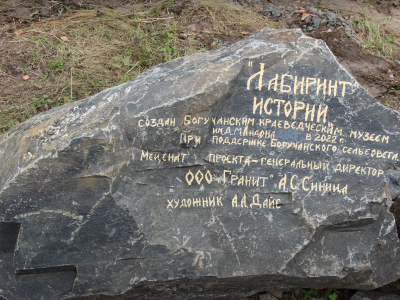 "Лабиринт"
истории
создан Богучанским краеведческим музеем
им. Д.М. Андона в 2022 г.
При поддержке Богучанского сельсовета.
Меценат проекта-генеральный директор
ООО "Гранит" А.С. Синица
художник А.А. Дайс